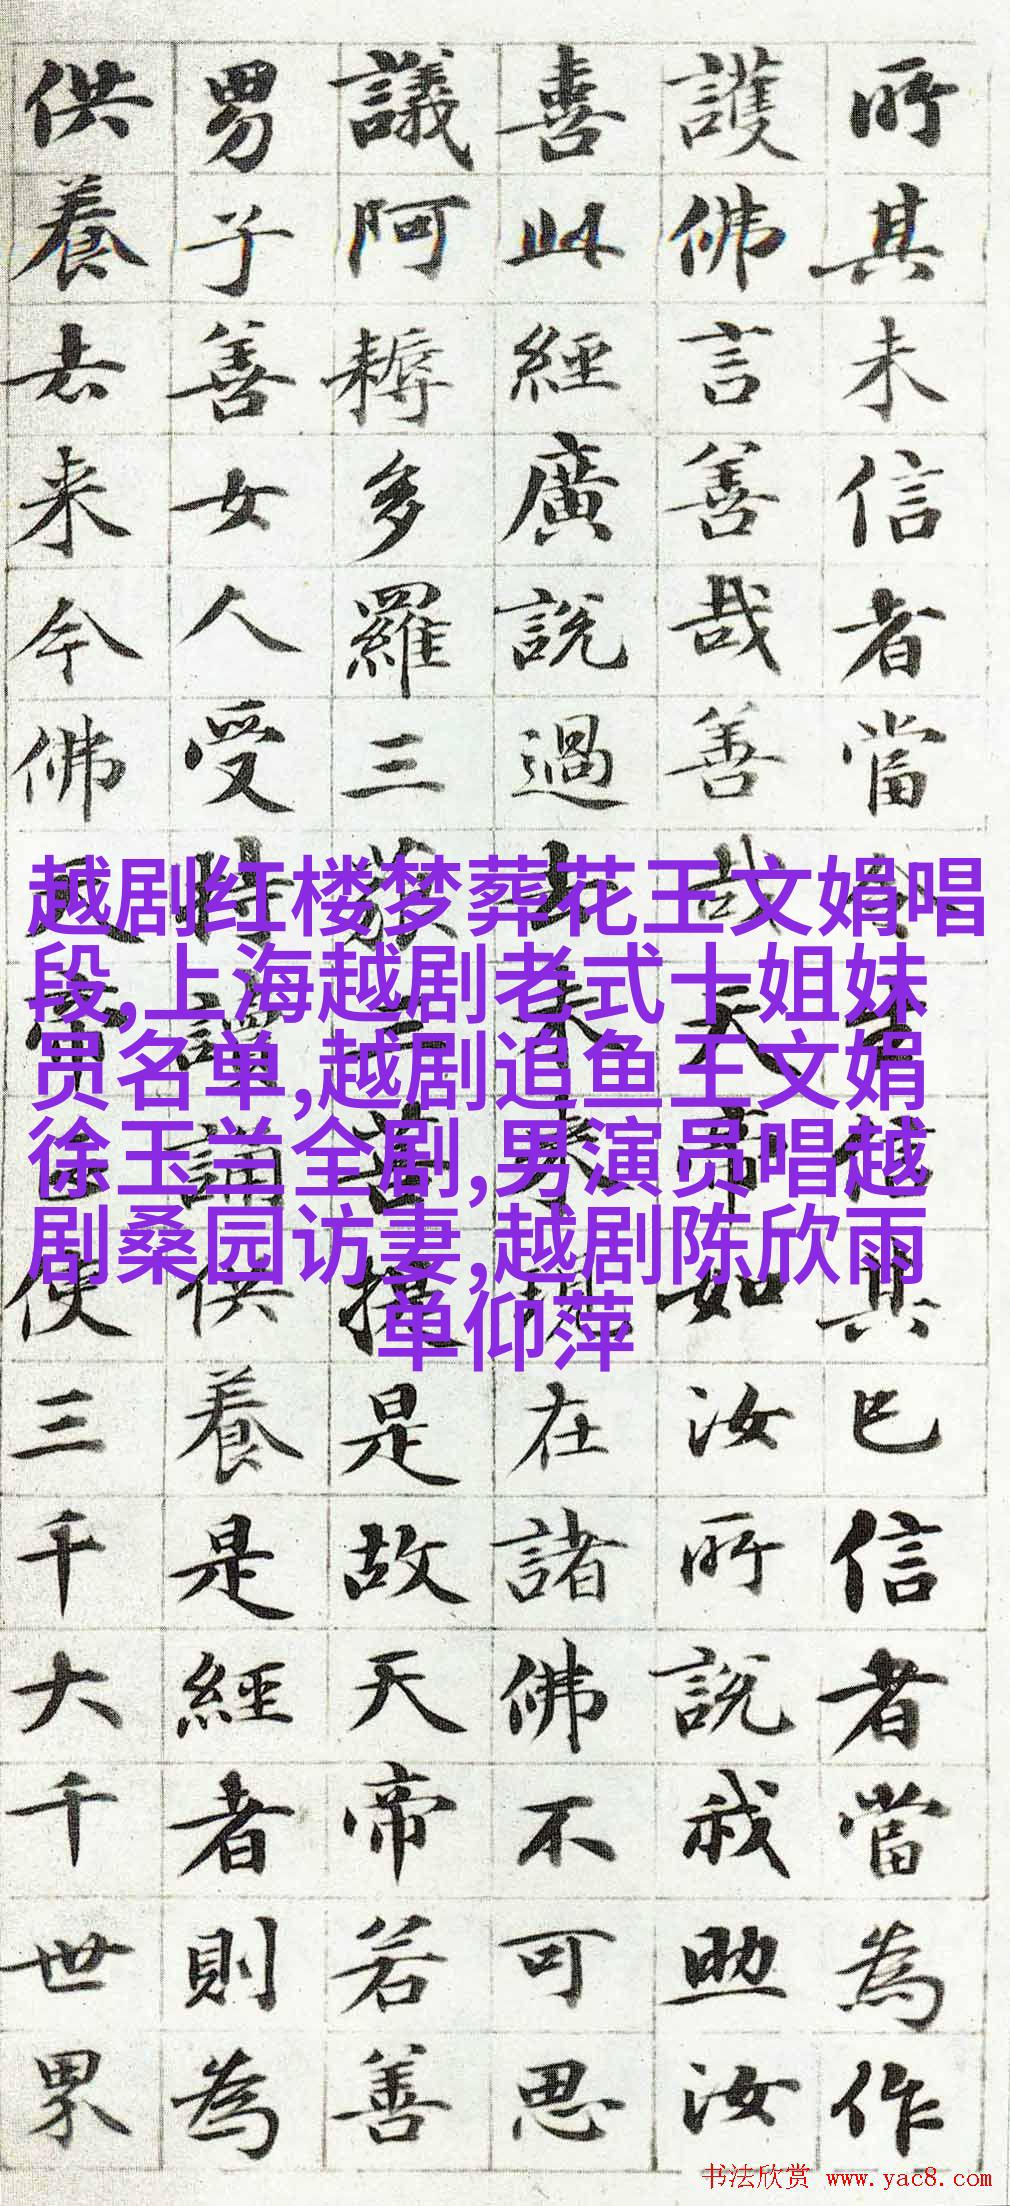 所其未信者當信其已信者當為作
護佛言善哉善哉天帝如汝所說我助汝
喜此經廣說過去未来現在諸佛不可思
議阿耨多羅三藐三菩提是故天帝若善
男子善女人受持讀誦供養是經者則為
供養去来今佛天帝使三千大千世界
越剧红楼梦葬花王文娟唱
段,上海越剧老式十姐妹
员名单,越剧追鱼王文娟
徐玉兰全剧,男演员唱越
剧桑园访妻,越剧陈欣雨
单仰萍
书法欣赏 www.yac8.com